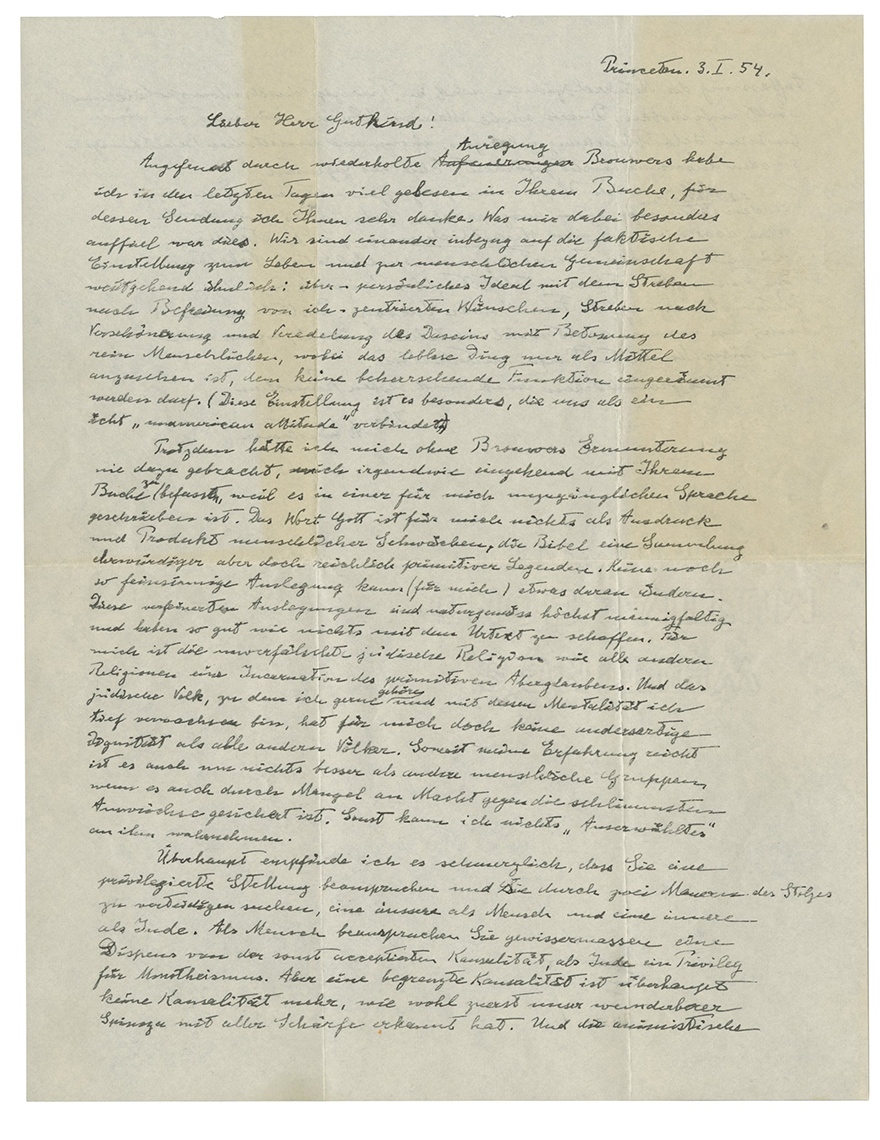 Princeton. 3. I. 54.
Lieber Herr Gutkind!
Anregung
Angefeuert durch wiederholte Brouwers habe
ich in den letzten Tagen viel gelesen in Ihrem Buche, für
dessen Sendung ich Ihnen sehr danke. Was mir dabei besonders
auffiel war dies. Wir sind einander inbezug auf die faktische
Einstellung zum Leben und zur menschlichen Gemeinschaft
weitgehend ähnlich: über-persönliches Ideal mit dem Streben
nach Befreiung von ich-zentrierten Wünschen, Streben nach
Verschönerung und Veredelung des Daseins mit Betonung des
rein Menschlichen, wobei das leblose Ding nur als Mittel
anzusehen ist, dem keine beherrschende Funktion eingeräumt
werden darf. (Diese Einstellung ist es besonders, die uns als ein
echt „unamerican attitude" verbindet)
Trotzdem hätte ich mich ohne Brouwers Ermunterung
nie dazu gebracht, mich irgendwie eingehend mit Ihrem
Buche zu befassen, weil es in einer für mich unzugänglichen Sprache
geschrieben ist. Das Wort Gott ist für mich nichts als Ausdruck
und Produkt menschlicher Schwächen, die Bibel eine Sammlung
ehrwürdiger aber doch reichlich primitiver Legenden. Keine noch
so feinsinnige Auslegung kann (für mich) etwas daran ändern.
Diese verfeinerten Auslegungen sind naturgemäss höchst mannigfaltig
und haben so gut wie nichts mit dem Urtext zu schaffen. Für
mich ist die unverfälschte jüdische Religion wie alle anderen
Religionen eine Incarnation des primitiven Aberglaubens. Und das
jüdische Volk, zu dem ich gerne gehöre und mit dessen Mentalität ich
tief verwachsen bin, hat für mich doch keine andersartige
Dignität als alle andern Völker. Soweit meine Erfahrung reicht
ist es auch um nichts besser als andere menschliche Gruppen,
wenn es auch durch Mangel an Macht gegen die schlimmsten
Auswüchse gesichert ist. Sonst kann ich nichts „Auserwähltes"
an ihm wahrnehmen.
Überhaupt empfinde ich es schmerzlich, dass Sie eine
privilegierte Stellung beanspruchen und Sie durch zwei Mauern des Stolzes
zu verteidigen suchen, eine äussere als Mensch und eine innere
als Jude. Als Mensch beanspruchen Sie gewissermassen einen
Dispens von der sonst acceptierten Kausalität, als Jude ein Privileg
für Monotheismus. Aber eine begrenzte Kausalität ist überhaupt
keine Kausalität mehr, wie wohl zuerst unser wunderbarer
Spinoza mit aller Schärfe erkannt hat. Und die animistische